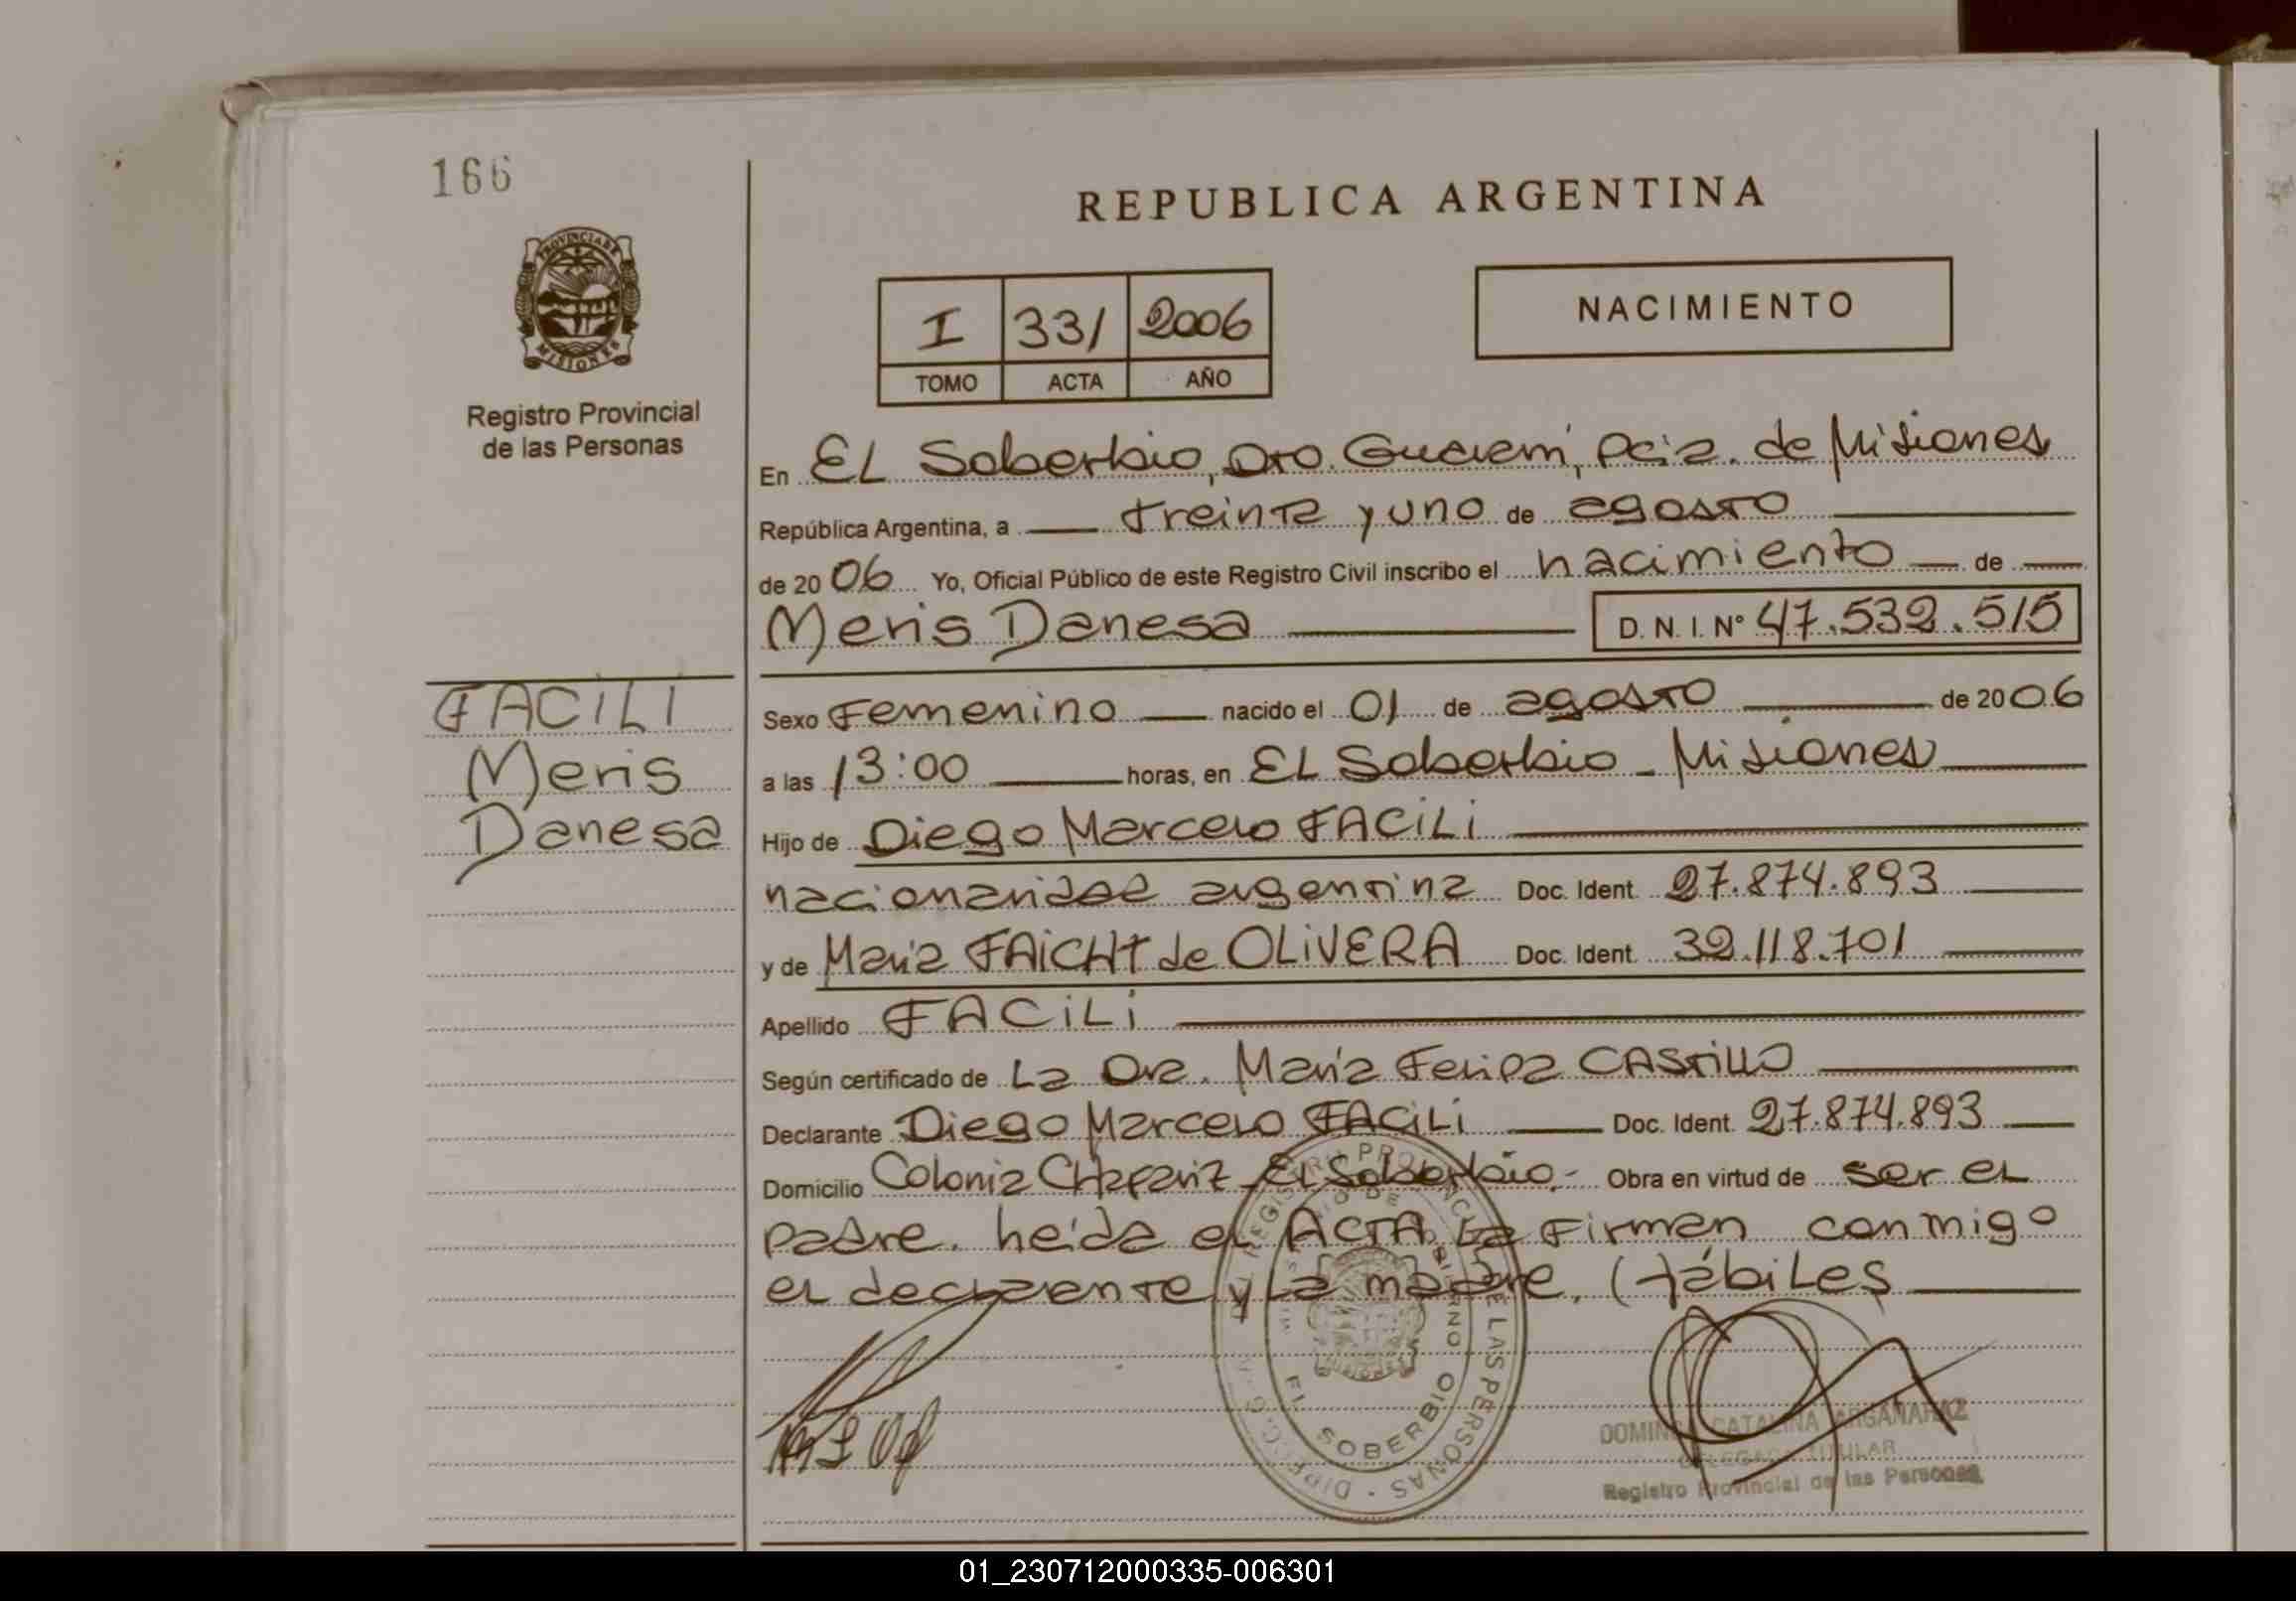 166
REPUBLICA ARGENTINA
PROVINCIA DE
MISIONES
Registro Provincial
de las Personas
I 331 2006
TOMO ACTA AÑO
NACIMIENTO
En EL Soberbio, Dto. Guaraní, Pcia. de Misiones
República Argentina, a treinta y uno de agosto
de 2006 Yo, Oficial Público de este Registro Civil inscribo el nacimiento de
Meris Danesa D.N.I. Nº 47.532.515
FACILI
Meris
Danesa
Sexo Femenino nacido el 01 de agosto de 2006
a las 13:00 horas, en EL Soberbio - Misiones
Hijo de Diego Marcelo FACILI
nacionalidad argentina Doc. Ident. 27.874.893
y de María FAICHT de OLIVERA Doc. Ident. 32.118.701
Apellido FACILI
Según certificado de La Dra. María Felipa CASTILLO
Declarante Diego Marcelo FACILI Doc. Ident. 27.874.893
Domicilio Colonia Chafariz - El Soberbio.- Obra en virtud de ser el
padre. Leída el ACTA La Firman conmigo
el declarante y La madre. (Hábiles
EL SOBERBIO
DELEGADA TITULAR
Registro Provincial de las Personas
01_230712000335-006301